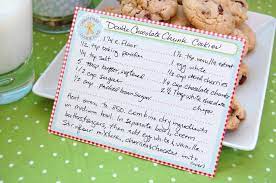 Double Chocolate Chunk Cookies
1 1/4 c flour
1 1/2 tsp vanilla extract
1/4 tsp baking powder
1 egg white
1/4 tsp salt
dried cherries
5 tbsp butter, softened
1/4 cup semisweet chocolate chunks
1/2 cup sugar
2 1/2 tbsp white chocolate
chips
1/2 cup packed brown sugar
Heat oven to 350. Combine dry ingredients
in medium bowl. In separate bowl, cream
butter & sugars, then add egg white & vanilla.
Stir flour mixture, cherries & chocolates into